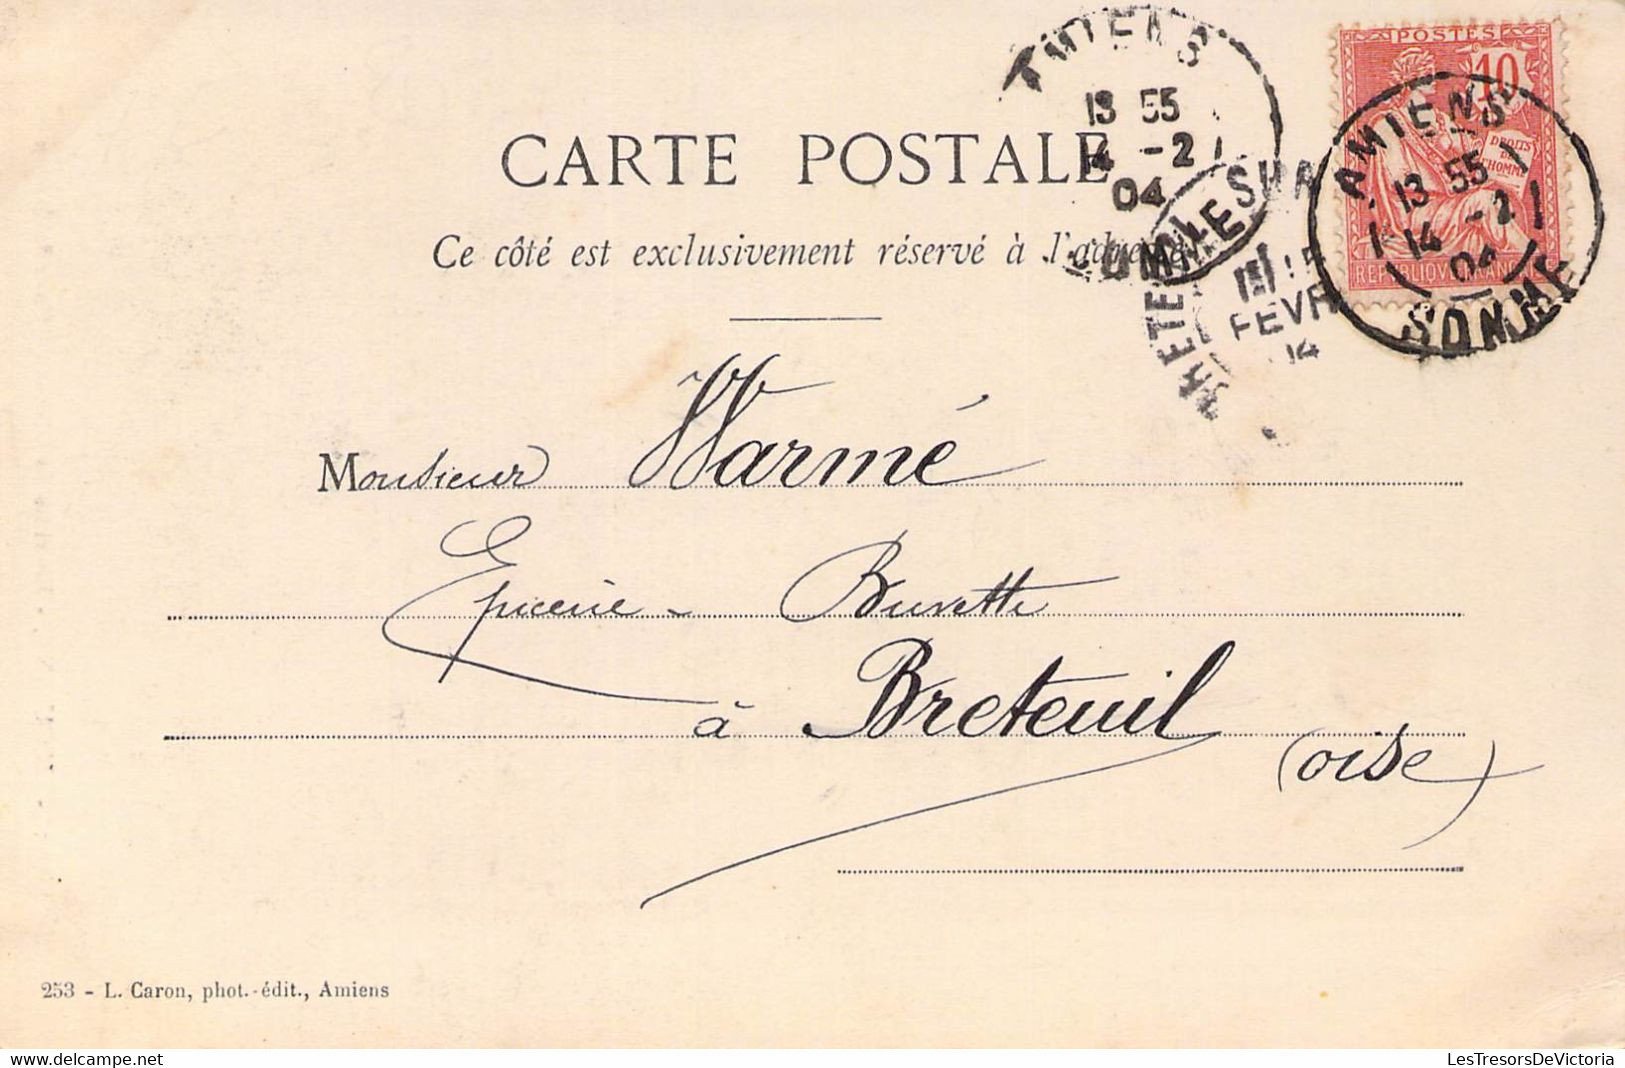 AMIENS
13 55
14 -2
04
SOMME
POSTES
10
DROITS
DE
L'HOMME
REPUBLIQUE FRANCAISE
AMIENS
13 55
14 -2
04
SOMME
15
FEVR
CARTE POSTALE
Ce côté est exclusivement réservé à l'adresse
Monsieur Warmé
Epicerie - Buvette
à Breteuil
(oise)
253 - L. Caron, phot.-édit., Amiens
LesTresorsDeVictoria